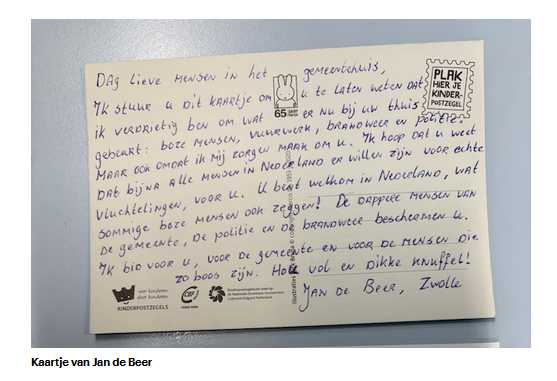 Dag lieve mensen in het gemeentehuis,
Ik stuur u dit kaartje om u te laten weten dat
ik verdrietig ben om wat er nu bij uw thuis
gebeurt: boze mensen, vuurwerk, brandweer en politie.
Maar ook omdat ik mij zorgen maak om u. Ik hoop dat u weet
dat bijna alle mensen in Nederland er willen zijn voor echte
vluchtelingen, voor u. U bent welkom in Nederland, wat
sommige boze mensen ook zeggen! De dappere mensen van
de gemeente, de politie en de brandweer beschermen u.
Ik bid voor u, voor de gemeente en voor de mensen die
zo boos zijn. Hou vol en dikke knuffel!
Jan de Beer, Zwolle
65 jaar
PLAK
HIER JE
KINDER-
POSTZEGEL
voor kinderen
door kinderen
KINDERPOSTZEGELS
CBF
Kaartje van Jan de Beer